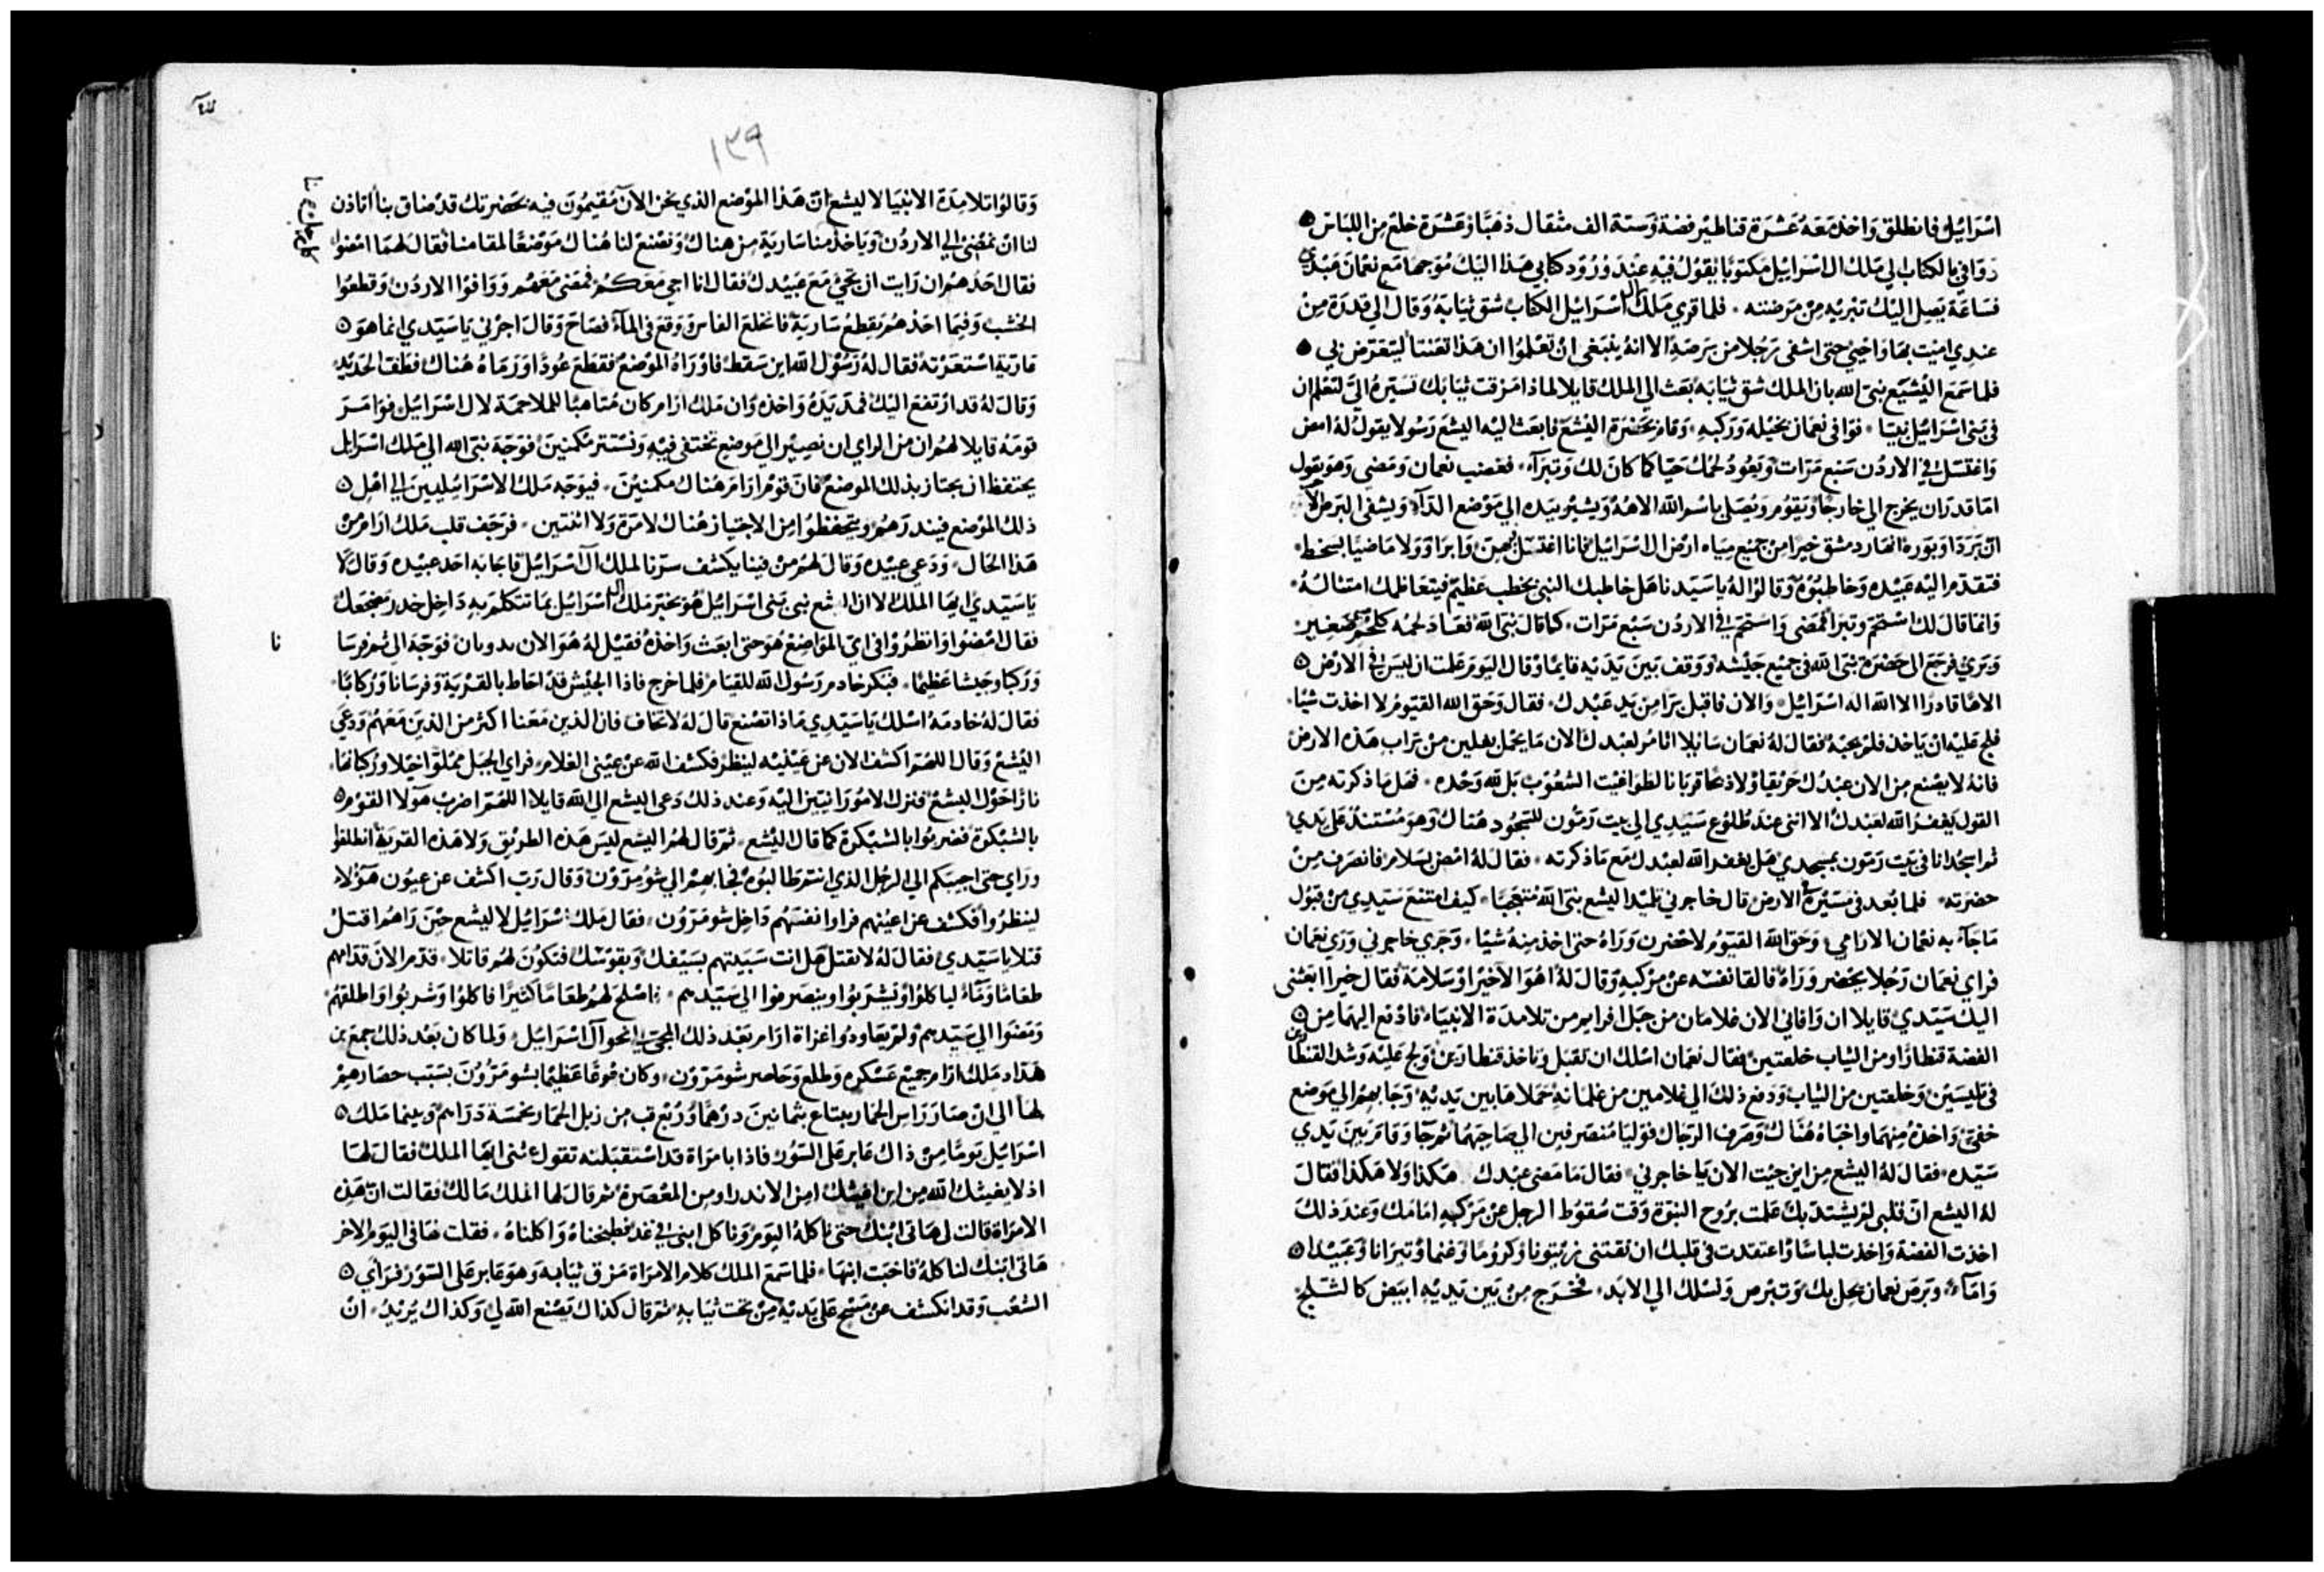 اسرائيل فانطلق واخذ معه عشرة قناطير فضة وستة الف مثقال ذهبًا وعشرة خلع من اللباس
ووافي بالكتاب الي ملك ال اسرائيل مكتوبًا يقول فيه عند ورود كتابي هذا اليك موجها مع نعمان عبدي
فساعة يصل اليك تبريه من مرضته فلما قري ملك ال اسرائيل الكتاب شق ثيابه وقال الي قدرة من
عندي اميت بها واحيي حتى اشفى رجلا من برصه الا انه ينبغي ان تعلموا ان هذا تعنتا ليتعرض بي
فلما سمع اليشع نبي الله بان الملك شق ثيابه بعث الي الملك قايلا لماذا مزقت ثيابك تسيره الي لتعلم ان
في بني اسرائيل نبيا فوافى نعمان بخيله وركبه وقام بحضرة اليشع فابعث اليه اليشع رسولا يقول له امض
واغتسل في الاردن سبع مرات ويعود لحمك حيا كما كان لك وتبرآ فغضب نعمان ومضي وهو يقول
اما قدر ان يخرج الي خارجًا ويقوم ويصلي باسم الله الاهه ويشير بيده الي موضع الدآء ويشفى البرص الآ
ان بردا وبوره انهار دمشق خير من جميع مياه ارض ال اسرائيل فانا اغتسل بهن وابرا وولا ماضيا بسخط
فتقدم اليه عبيده وخاطبوه وقالوا له يا سيدنا هل خاطبك النبي بخطب عظيم فيتعاظمك امتثاله
وانما قال لك استحم وتبرا فمضى واستحم في الاردن سبع مرات كما قال نبي الله فعاد لحمه كلحم صغير
وبري فرجع الى حضرة نبي الله في جميع جيشه ووقف بين يديه قايمًا وقال اليوم علمت ان ليس في الارض
الاهًا قادرا الا الله اله اسرائيل والان فاقبل برا من يد عبدك فقال وحق الله القيوم لا اخذت شيًا
فلج عليه ان ياخذ فلم يجبه فقال له نعمان سايلا انا مر لعبدك الان ما يحمل بغلين من تراب هذه الارض
فانه لا يصنع من الان عبدك حريقا ولا ذبحا قربانا لطواغيت الشعوب بل لله وحده فهل ما ذكرته من
القول يغفر الله لعبدك الا انني عند طلوع سيدي الى بيت رمون للسجود هناك وهو مستند على يدي
ثم اسجد انا في بيت رمون بمسجدي هل يغفر الله لعبدك مع ما ذكرته فقال له امض بسلام فانصرف من
حضرته فلما بعد في مسيرة الارض قال خاجرني تلميذ اليشع نبي الله متعجبًا كيف امتنع سيدي من قبول
ما جآء به نعمان الارامي وحق الله القيوم لاحضرن وراه حتى اخذ منه شيًا وجري خاجرني وري نعمان
فراي نعمان رجلا يحضر وراه فالقا نفسه عن مركبه وقال له اهوالآ خيرا وسلامة فقال خيرا ابعثنى
اليك سيدي قايلا ان وافاني الان غلامان من جبل افرايم من تلامدة الانبياء فادفع اليهما من
الفضة قنطارًا ومن الثياب خلعتين فقال نعمان اسلك ان تقبل وتاخذ قنطارين ولج عليه وشد القنطارين
في تليسين وخلعتين من الثياب ودفع ذلك الي غلامين من غلمانه حملاها بين يديه وجا بهم الي موضع
خفي واخذه منهما واخباه هناك وصرف الرجال فوليا منصرفين الي صاحبهما ثم جآ وقام بين يدي
سيده فقال له اليشع من اين جيت الان يا خاجرني فقال ما مضى عبدك هكذا ولا هكذا فقال
له اليشع ان قلبي لم يشتد بك علمت بروح النبوة وقت سقوط الرجل عن مركبه امامك وعند ذلك
اخذت الفضة واخذت لباسًا واعتقدت في قلبك ان تقتني زيتونا وكرومًا وغنما وثيرانا وعبيدا
وامآء وبرص نعمان يحل بك وتبرص ونسلك الي الابد فخرج من بين يديه ابيض كالثلج
١٣٩
وقالوا تلامدة الانبيا لاليشع ان هذا الموضع الذي نحن الان مقيمون فيه بحضرتك قد ضاق بنا أتاذن
لنا ان نمضي الي الاردن وياخذ منا سارية من هناك ونصنع لنا هناك موضعًا لمقامنا فقال لهما امضوا
فقال احدهم ان رايت ان تجي مع عبيدك فقال انا اجي معكم فمضى معهم ووافوا الاردن وقطعوا
الخشب وفيما احدهم يقطع سارية فانخلع الفاس ووقع في المآء فصاح وقال اجرني يا سيدي انما هو
عارية استعرته فقال له رسول الله اين سقط فاوراه الموضع فقطع عودًا ورماه هناك فطفّ الحديد
وقال له قد ارتفع اليك فمد يده واخذه وان ملك ارام كان متاهبًا للملاحمة لال اسرائيل فوامر
قومه قايلا لهم ان من الراي ان نصير الي موضع نختفي فيه ونستتر مكمنين فوجه نبي الله الي ملك اسرايل
يحتفظ ان يجتاز بذلك الموضع فان قوم ارام هناك مكمنين فيوجه ملك الاسرائيليين الي اهل
ذلك الموضع فينذرهم ويتحفظوا من الاجتياز هناك لا مرة ولا اثنتين فرجف قلب ملك ارام من
هذا الحال ودعي عبيده وقال لهم من فينا يكشف سرنا لملك آل اسرائيل فاجابه احد عبيده وقال لا
يا سيدي ايها الملك الا ان اليشع نبي بني اسرائيل هو يخبر ملك ال اسرائيل بما تتكلم به داخل خدر مضجعك
فقال امضوا وانظروا في اي المواضع هو حتى ابعث واخذه فقيل له هو الان بدوثان فوجه الي ثم فرسا
نا
وركبا وجيشا عظيما فبكر خادم رسول الله للقيام فلما خرج فاذا الجيش قد احاط بالقرية وفرسانا وركابًا
فقال له خادمه اسلك يا سيدي ماذا تصنع قال له لا تخاف فان الذين معنا اكثر من الذين معهم ودعي
اليشع وقال اللهم اكشف الان عن عينيه لينظر فكشف الله عن عيني الغلام فراي الجبل مملوًا خيلا وركبانا
نارًا حول اليشع فنزلت الامورانيين اليه وعند ذلك دعى اليشع الى الله قايلا اللهم اضرب هولا القوم
بالشبكرة فضربوا بالشبكرة كما قال اليشع ثم قال لهم اليشع ليس هذه الطريق ولا هذه القرية انطلقوا
وراي حتى اجيبكم الي الرجل الذي انتم طالبوه فجا بهم الي شومرون وقال رب اكشف عن عيون هؤلاء
لينظروا فكشف عن اعينهم فراوا نفسهم داخل شومرون فقال ملك اسرائيل لاليشع حين راهم اقتل
قتلا يا سيدي فقال له لا تقتل هل انت سبيتهم بسيفك وبقوسك فتكون لهم قاتلا قدم الان قدامهم
طعاما ومآء لياكلوا ويشربوا وينصرفوا الى سيدهم فاصلح لهم طعامًا كثيرًا فاكلوا وشربوا واطلقهم
ومضوا الي سيدهم ولم يعاودوا غزاة ارام بعد ذلك المجي نحو آل اسرائيل ولما كان بعد ذلك جمع بن
هداد ملك ارام جميع عسكره وطلع وحاصر شومرون وكان جوعًا عظيما بشومرون بسبب حصارهم
لها الي ان صار راس الحمار يبتاع بثمانين درهمًا وربع قب من زبل الحمام بخمسة دراهم وبينما ملك
اسرائيل يومًا من ذاك عابر على السور فاذا بامراة قد استقبلته تقول غثني ايها الملك فقال لها
اذ لا يغيثك الله من اين اغيثك امن الاندر او من المعصرة ثم قال لها الملك ما لك فقالت ان هذه
الامراة قالت لي هاتي ابنك حتى ناكله اليوم وناكل ابني في غد فطبخناه واكلناه فقلت لها في اليوم الاخر
هاتي ابنك لناكله فاخبت ابنها فلما سمع الملك كلام الامراة مزق ثيابه وهو عابر على السور فراي
الشعب وقد انكشف عن مسح على يديه من تحت ثيابه ثم قال كذاك يصنع الله لي وكذاك يزيد ان